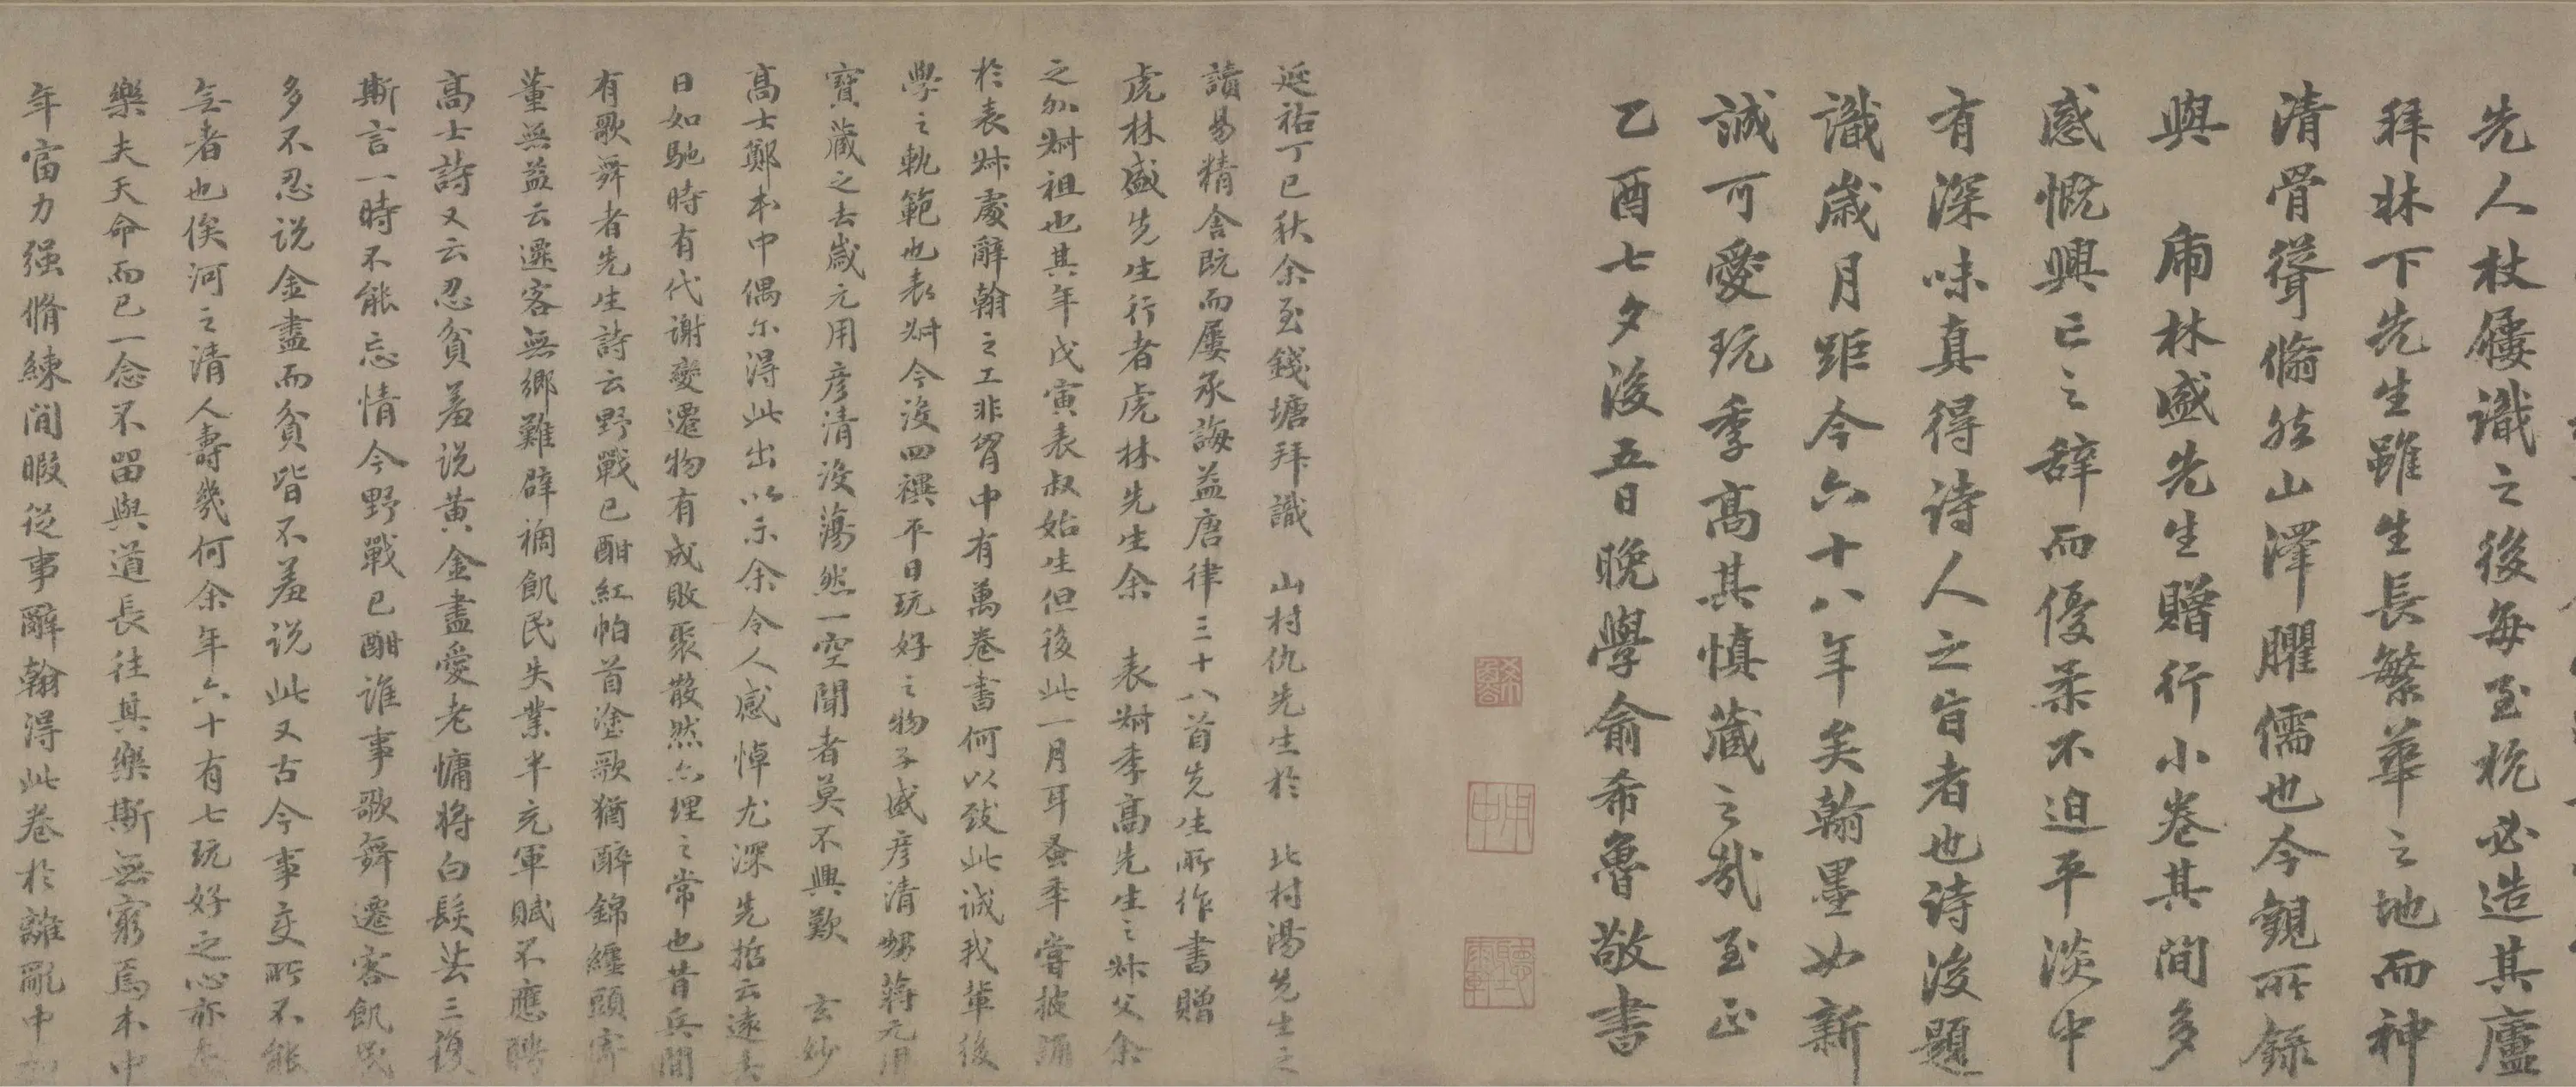 先人杖屨識之後每至杭必造其廬
拜林下先生雖生長繁華之地而神
清骨聳翛然山澤臞儒也今觀所錄
與 虎林盛先生贈行小卷其間多
感慨興亡之辭而優柔不迫平淡中
有深味真得詩人之旨者也詩後題
識歲月距今六十八年矣翰墨如新
誠可愛玩季高其慎藏之哉至正
乙酉七夕後五日晚學俞希魯敬書
希魯
用中
聽雨軒
延祐丁巳秋余至錢塘拜識 山村仇先生於 北村湯先生之
讀易精舍既而屢承誨益唐律三十八首先生所作書贈
虎林盛先生行者虎林先生余 表叔季高先生之叔父余
之外叔祖也其年戊寅表叔始生但後此一月耳蚤年嘗披誦
於表叔處辭翰之工非胸中有萬卷書何以致此誠我輩後
學之軌範也表叔今沒四禩平日玩好之物子盛彥清甥蔣元用
寶藏之去歲元用彥清沒蕩然一空聞者莫不興歎 玄妙
高士鄭本中偶尔得此出以示余令人感悼尤深先哲云遠去
日如馳時有代謝變遷物有成敗聚散然亦理之常也昔兵間
有歌舞者先生詩云野戰已酣紅帕首塗歌猶醉錦纏頭
董無益云遷客無鄉難辟禍飢民失業半充軍賦不應聘
高士詩又云忍貧羞說黃金盡愛老慵將白髮芸三復
斯言一時不能忘情今野戰已酣誰事歌舞遷客飢民
多不忍說金盡而貧皆不羞說此又古今事變所不能
無者也俟河之清人壽幾何余年六十有七玩好之心亦
樂夫天命而已一念不留與道長往其樂斯無窮焉本中
年富力强脩練閒暇從事辭翰得此卷於離亂中